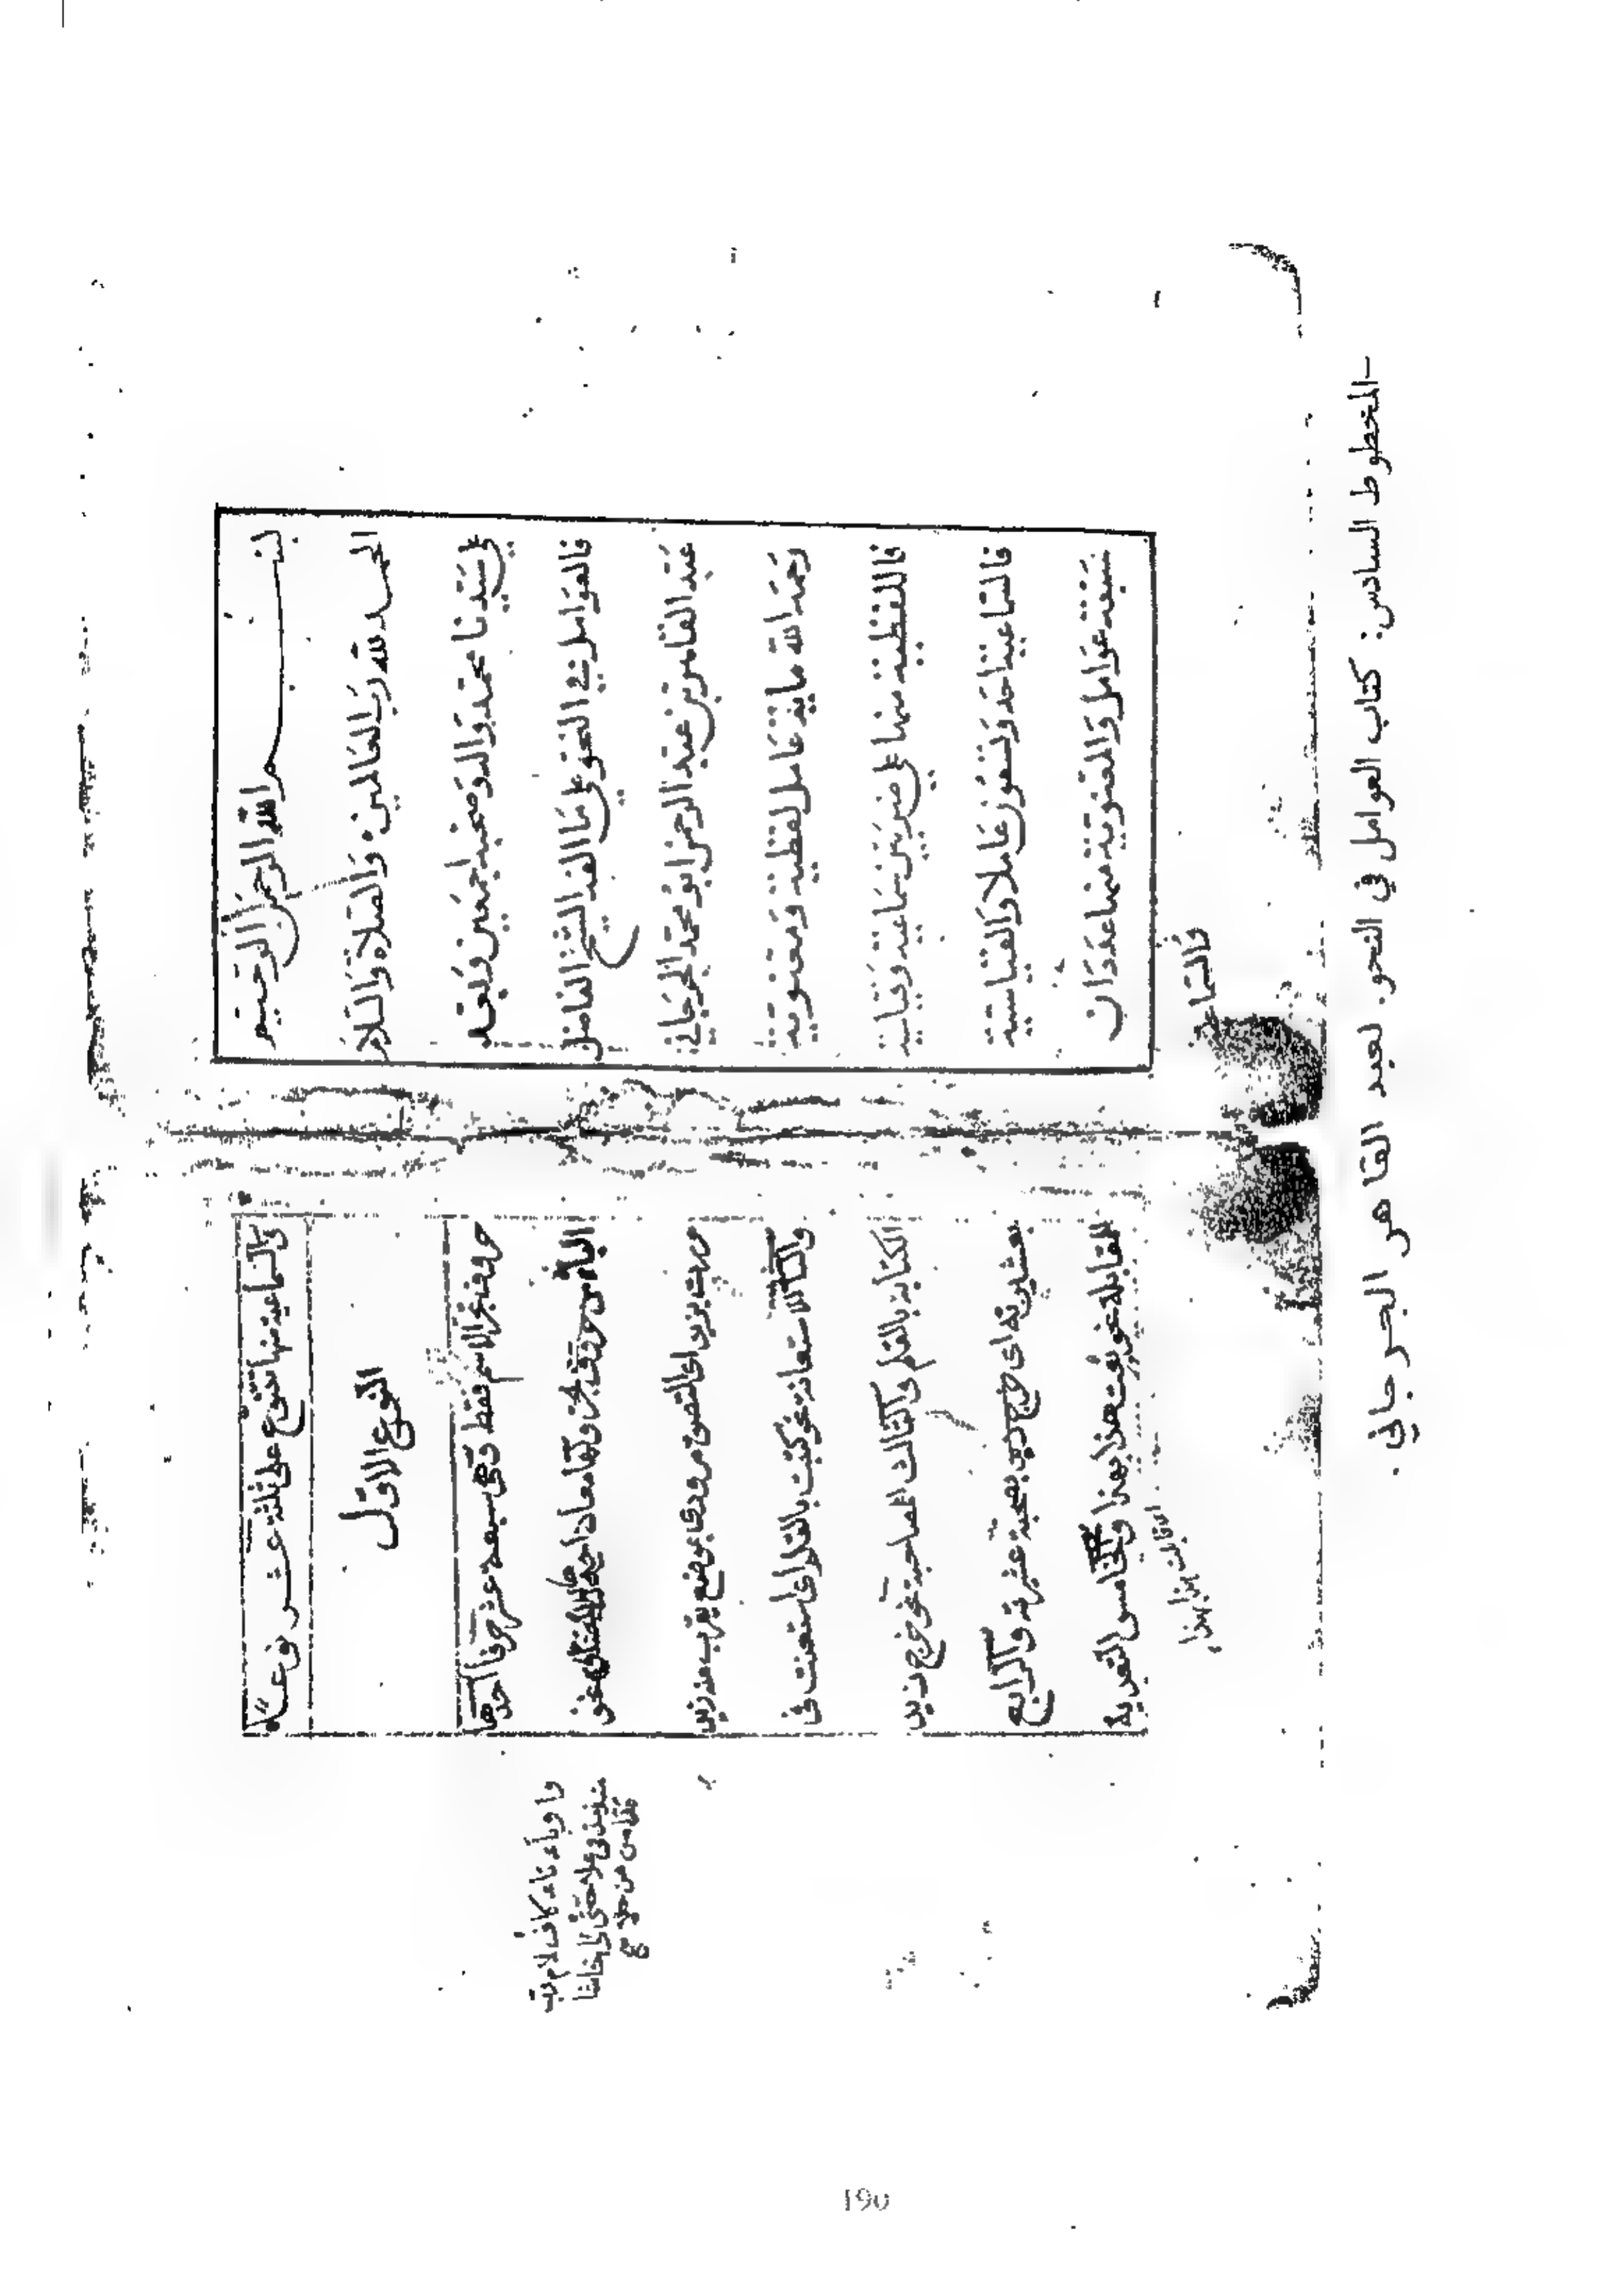 بسم الله الرحمن الرحيم
الحمد لله رب العالمين والصلاة والسلام
على سيدنا محمد وآله وصحبه اجمعين وبعد
فالعوامل في النحو على ما الفه الشيخ الفاضل
عبد القاهر بن عبد الرحمن ابو محمد الجرجاني
رحمه الله مائة عامل لفظية ومعنوية
فاللفظية منها على ضربين سماعية وقياسية
فالسماعية احد وتسعون عاملا والقياسية
سبعة عوامل والمعنوية منها عددان
فالسماعية
فالسماعية منها تتنوع على ثلثة عشر نوعا
النوع الاول
حروف تجر الاسم فقط وهي سبعة عشر حرفا احدها
الباء من حروف الجر ولها معان احدها للالصاق نحو
مررت بزيد اى التصق مرورى بموضع يقرب منه زيد
والثانى للاستعانة نحو كتبت بالقلم اى استعنت في
الكتابة بالقلم والثالث للمصاحبة نحو خرج زيد
بعشيرته اى خرج زيد بصحبة عشيرته والرابع
للمقابلة نحو بعت هذا بهذا والخامس للتعدية
اى قابلت هذا بهذا
واو وباء تاء كاف لام رب
منذ مذ فى على حتى الى حاشا
خلا
-المخطوط السادس: كتاب العوامل في النحو. لعبد القاهر الجرجاني.
190